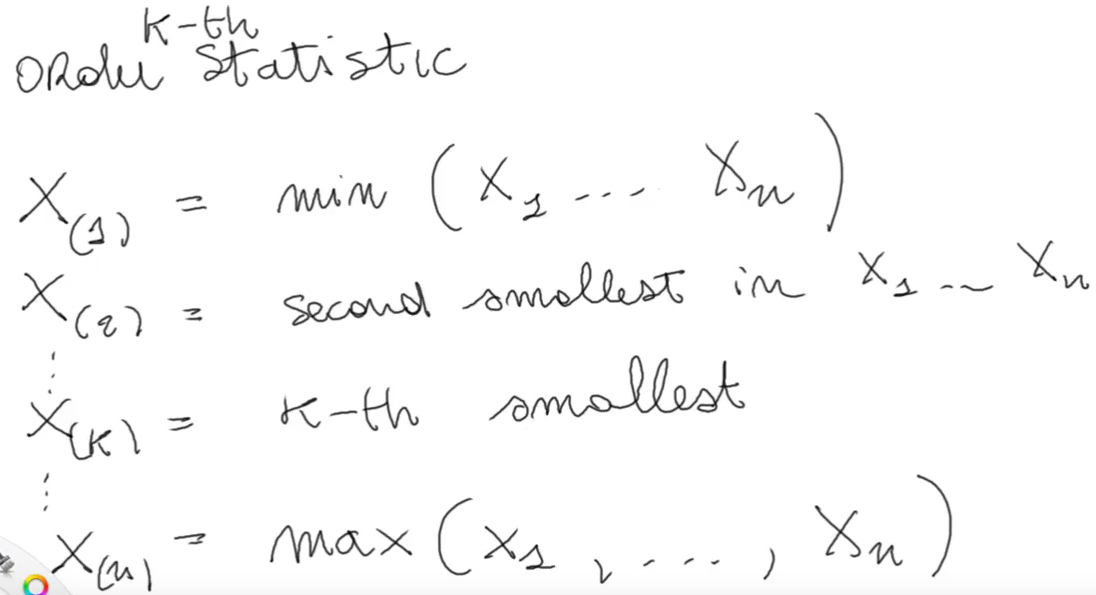 k-th
Order Statistic
X_(1) = min (X_1 ... X_n)
X_(2) = second smallest in X_1 ... X_n
⋮
X_(k) = k-th smallest
⋮
X_(n) = max (X_1, ...., X_n)